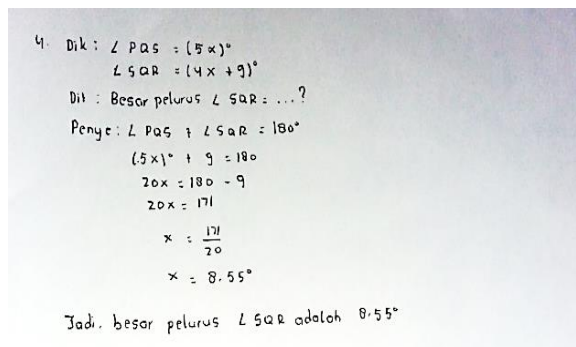 4. Dik : ∠ PQS = (5x)°
∠ SQR = (4x + 9)°
Dit : Besar pelurus ∠ SQR = ... ?
Penye : ∠ PQS + ∠ SQR = 180°
(5x)° + 9 = 180
20x = 180 - 9
20x = 171
x = 171/20
x = 8.55°
Jadi, besar pelurus ∠ SQR adalah 8.55°